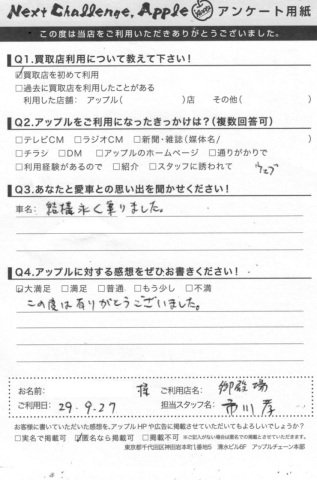 Next Challenge, Apple アンケート用紙
この度は当店をご利用いただきありがとうございました。
Q1.買取店利用について教えて下さい!
☑買取店を初めて利用
□過去に買取店を利用したことがある
利用した店舗: アップル( )店 その他( )
Q2.アップルをご利用になったきっかけは?(複数回答可)
□テレビCM □ラジオCM □新聞・雑誌(媒体名/ )
□チラシ □DM □アップルのホームページ □通りがかりで
□利用経験があるので □紹介 □スタッフに誘われて ウェブ
Q3.あなたと愛車との思い出を聞かせください!
車名: 結構永く乗りました。
Q4.アップルに対する感想をぜひお書きください!
☑大満足 □満足 □普通 □もう少し □不満
この度はありがとうございました。
お名前: 様 ご利用店名: 御殿場
ご利用日: 29.9.27 担当スタッフ名: 市川 孝
お客様に書いていただいた感想を、アップルHPや広告に掲載させていただいてもよろしいでしょうか?
□実名で掲載可 ☑匿名なら掲載可 □掲載不可 ※ご記入がない場合は匿名での掲載とさせていただきます。
東京都千代田区神田岩本町1番地5 清水ビル6F アップルチェーン本部